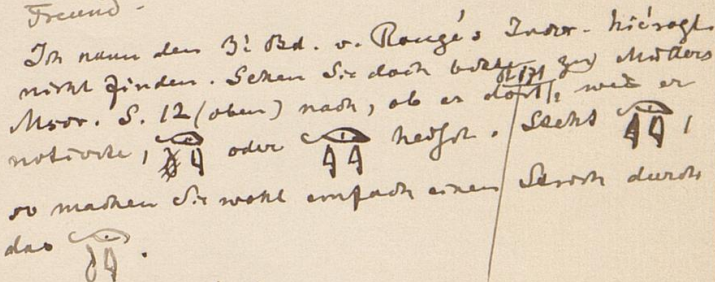 Freund.
Ich kann den 3t Bd. v. Rougé's Inscr. hiérogl.
nicht finden. Sehen Sie doch bitte zu Müllers
Mscr. S. 12 (oben) nach, ob er dort, wie er
notierte, oder heißt. Steht ,
so machen Sie wohl einfach einen Strich durch
das .